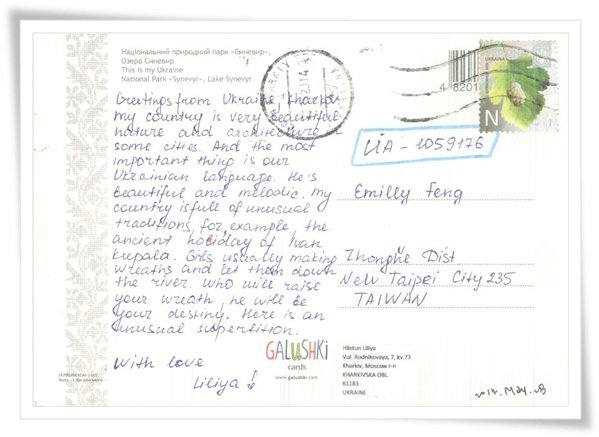 Національний природний парк «Синевир»,
Озеро Синевир
This is my Ukraine
National Park «Synevyr», Lake Synevyr
Greetings from Ukraine, Kharkiv
my country is very beautiful
nature and architecture in
some cities. And the most
important thing is our
Ukrainian language. He's
beautiful and melodic. My
country is full of unusual
traditions, for example the
ancient holiday of Ivan
Kupala. Girls usually making
wreaths and let them down
the river. Who will raise
your wreath, he will be
your destiny. Here is an
unusual superstition.
With love
Liliya
UKRAINE
N
4 8201
UA - 1059176
Emilly Feng
Zhonghe Dist
New Taipei City 235
TAIWAN
GALUSHKI
cards
www.galushki.com
Hlistun Liliya
Vul. Rodnikovaya, 7, kv.73
Kharkiv, Moscow r-n
KHARKIVSKA OBL.
61183
UKRAINE
2014. May. 28